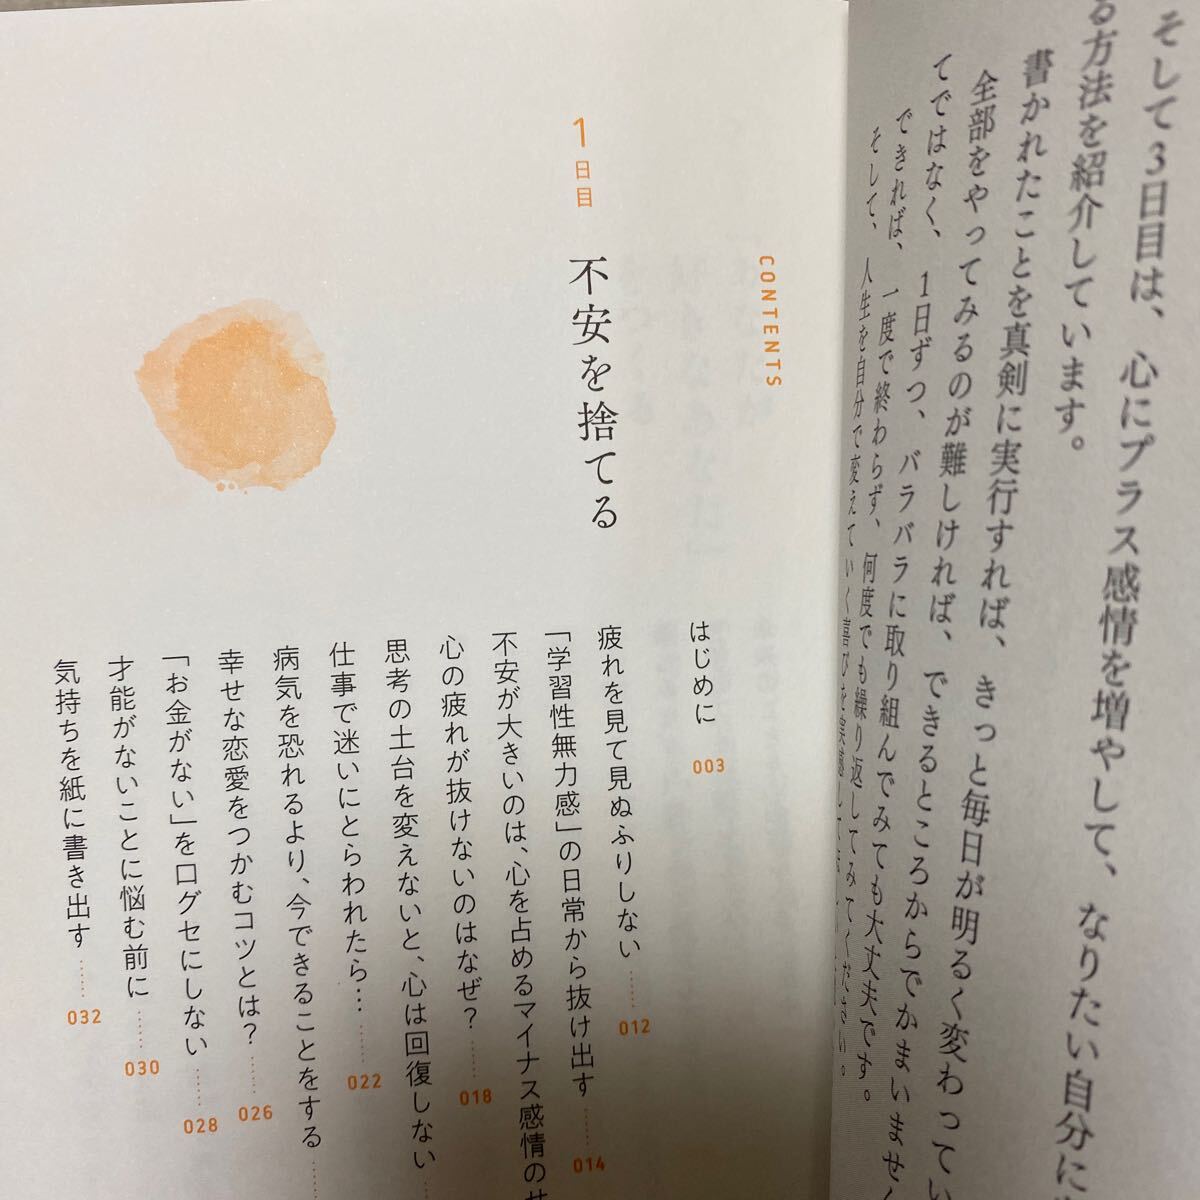 そして3日目は、心にプラス感情を増やして、なりたい自分に
る方法を紹介しています。
書かれたことを真剣に実行すれば、きっと毎日が明るく変わってい
全部をやってみるのが難しければ、できるところからでかまいませ
てではなく、1日ずつ、バラバラに取り組んでみても大丈夫です。
できれば、一度で終わらず、何度でも繰り返してみてください。
そして、人生を自分で変えていく喜びを実感して
CONTENTS
はじめに 003
1日目 不安を捨てる
疲れを見て見ぬふりしない…… 012
「学習性無力感」の日常から抜け出す…… 014
不安が大きいのは、心を占めるマイナス感情のせ
心の疲れが抜けないのはなぜ?…… 018
思考の土台を変えないと、心は回復しない
仕事で迷いにとらわれたら……… 022
病気を恐れるより、今できることをする
幸せな恋愛をつかむコツとは?…… 026
「お金がない」を口グセにしない…… 028
才能がないことに悩む前に…… 030
気持ちを紙に書き出す…… 032